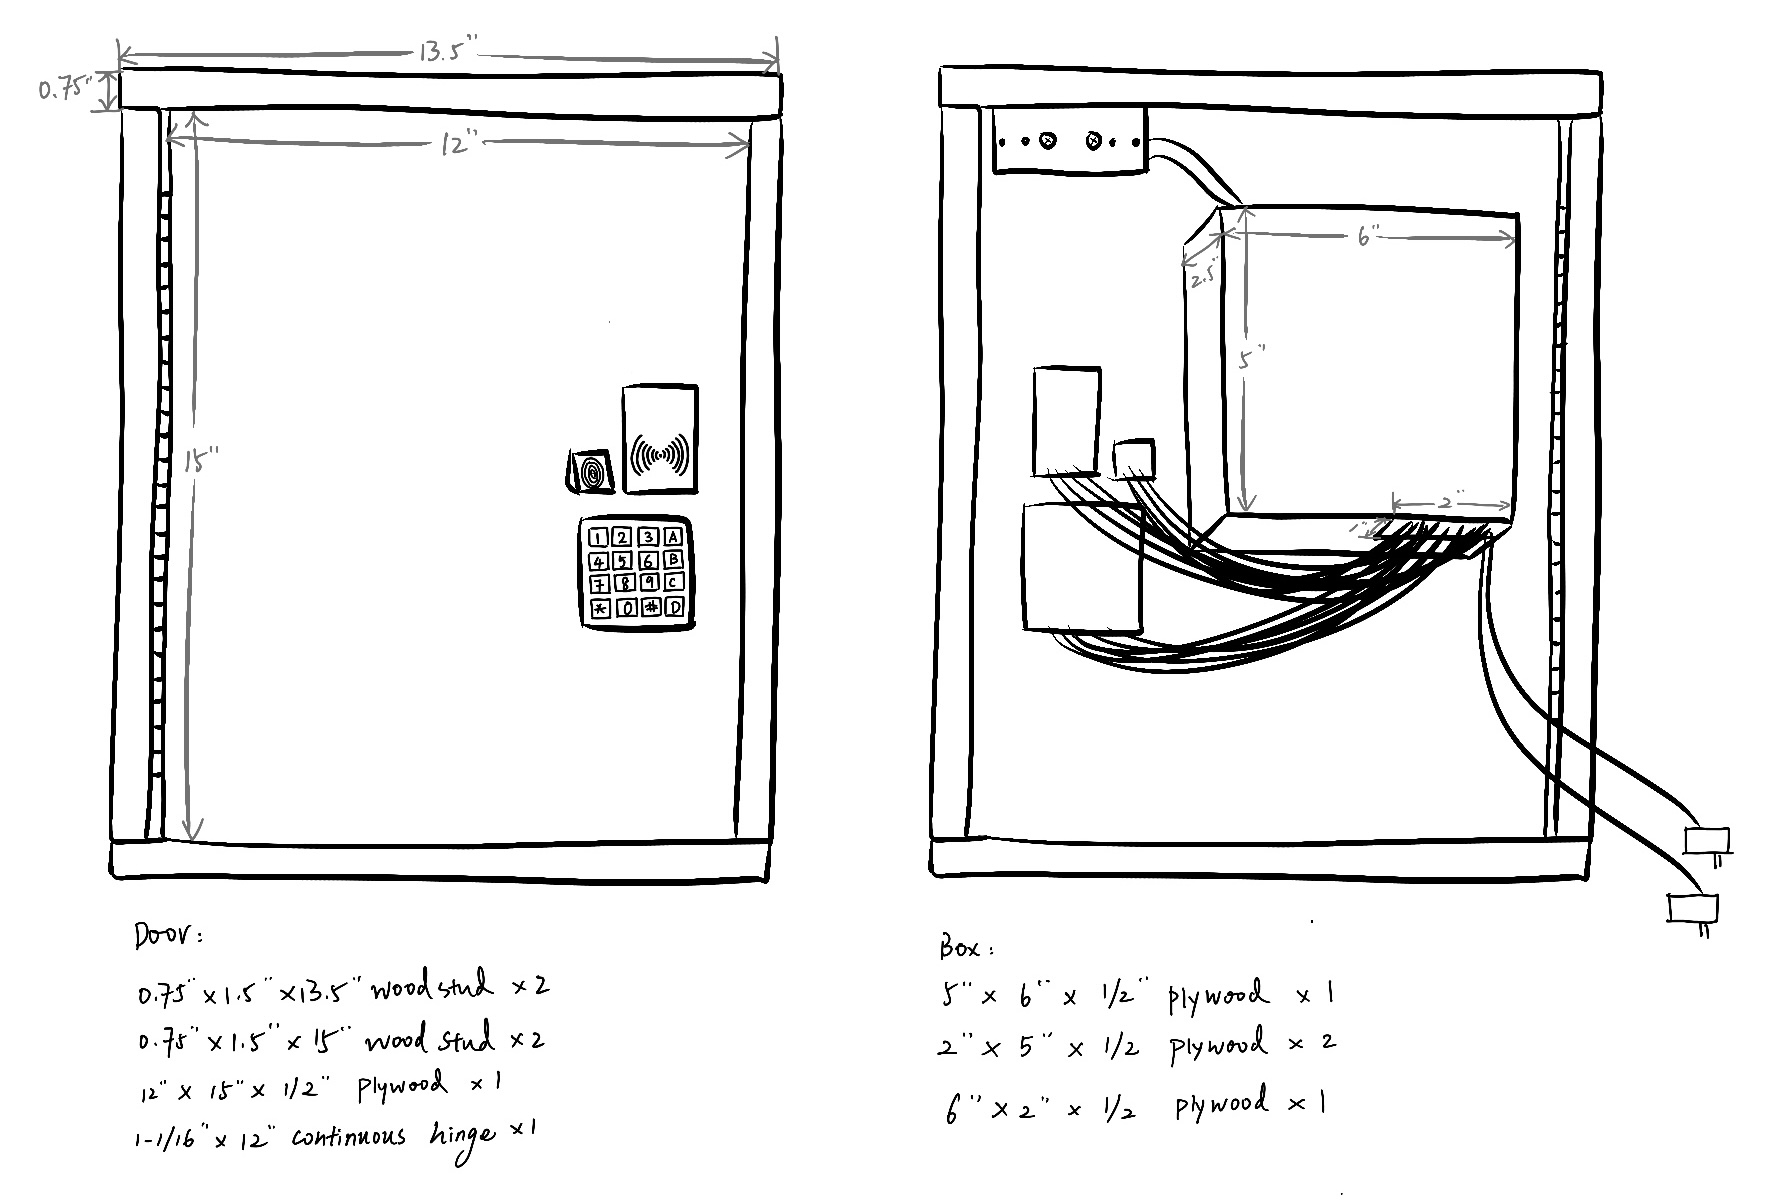 13.5"
0.75"
12"
15"
1 2 3 A
4 5 6 B
7 8 9 C
* 0 # D
6"
2.5"
5"
2"
1"
Door:
0.75" x 1.5" x 13.5" wood stud x 2
0.75" x 1.5" x 15" wood stud x 2
12" x 15" x 1/2" plywood x 1
1-1/16" x 12" continuous hinge x 1
Box:
5" x 6" x 1/2" plywood x 1
2" x 5" x 1/2 plywood x 2
6" x 2" x 1/2 plywood x 1